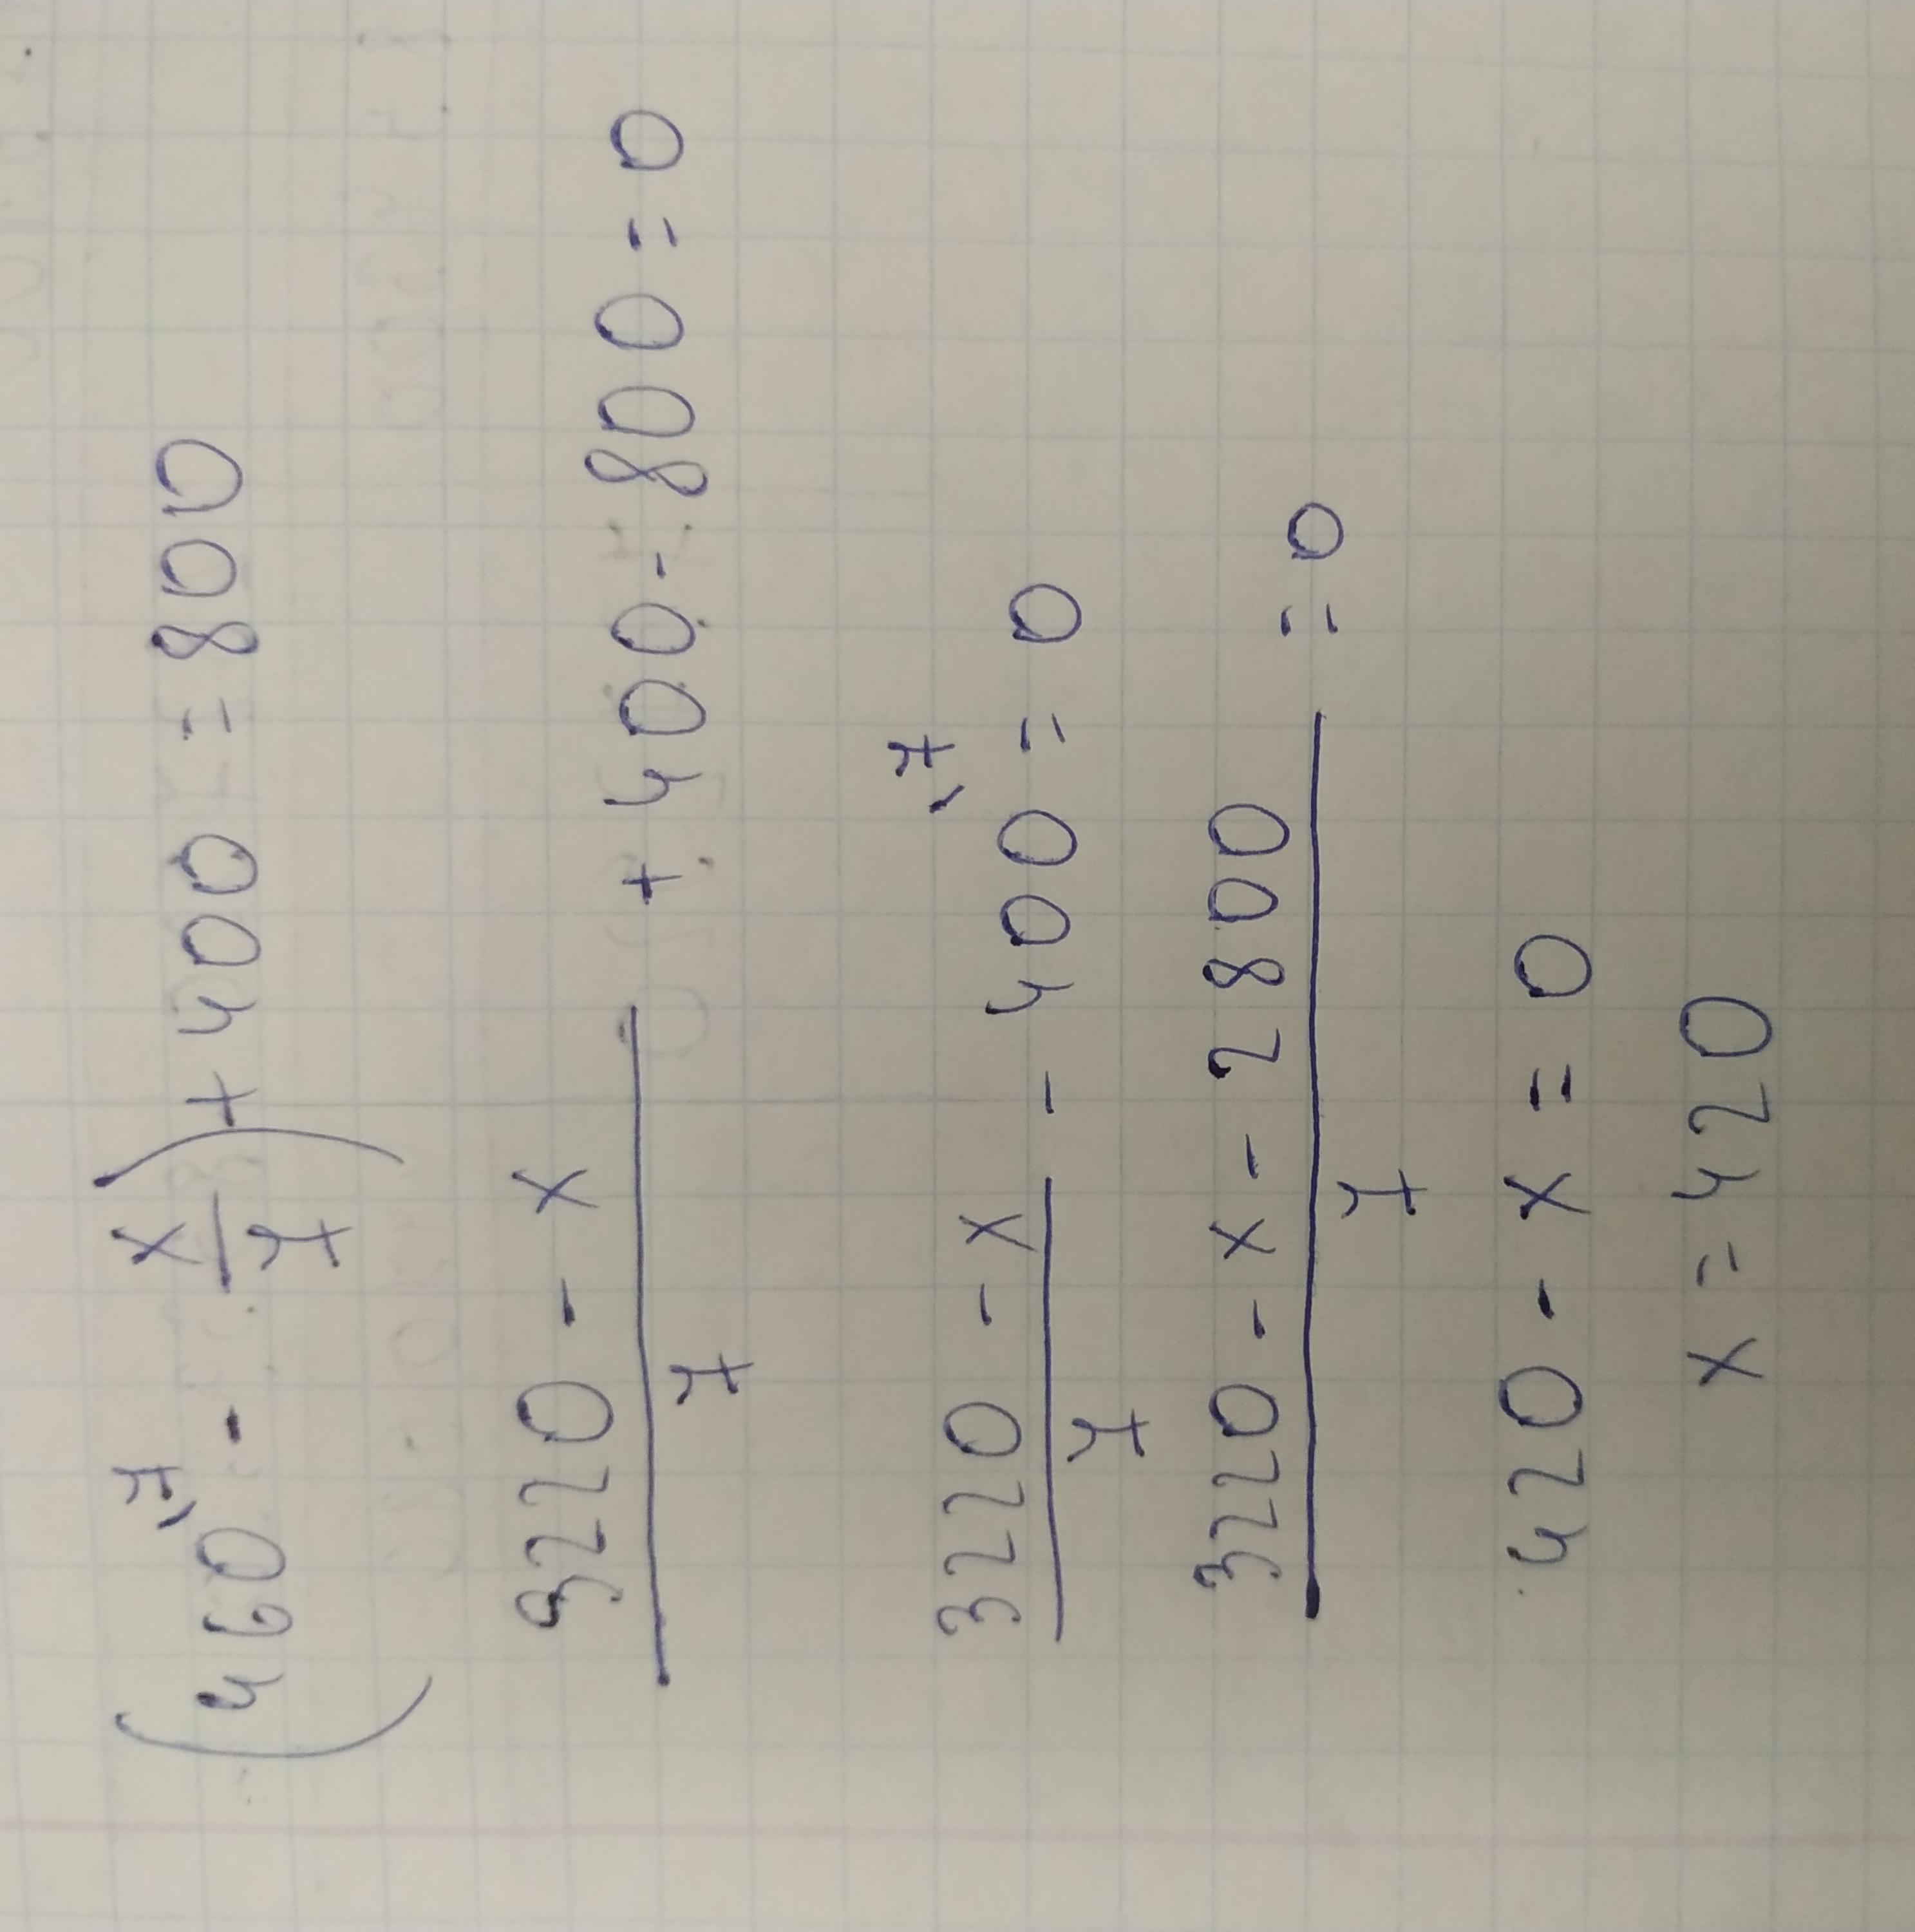 (460^{\7} - x/7) + 400 = 800
(3220 - x)/7 + 400 - 800 = 0
(3220 - x)/7 - 400^{\7} = 0
(3220 - x - 2800)/7 = 0
420 - x = 0
x = 420